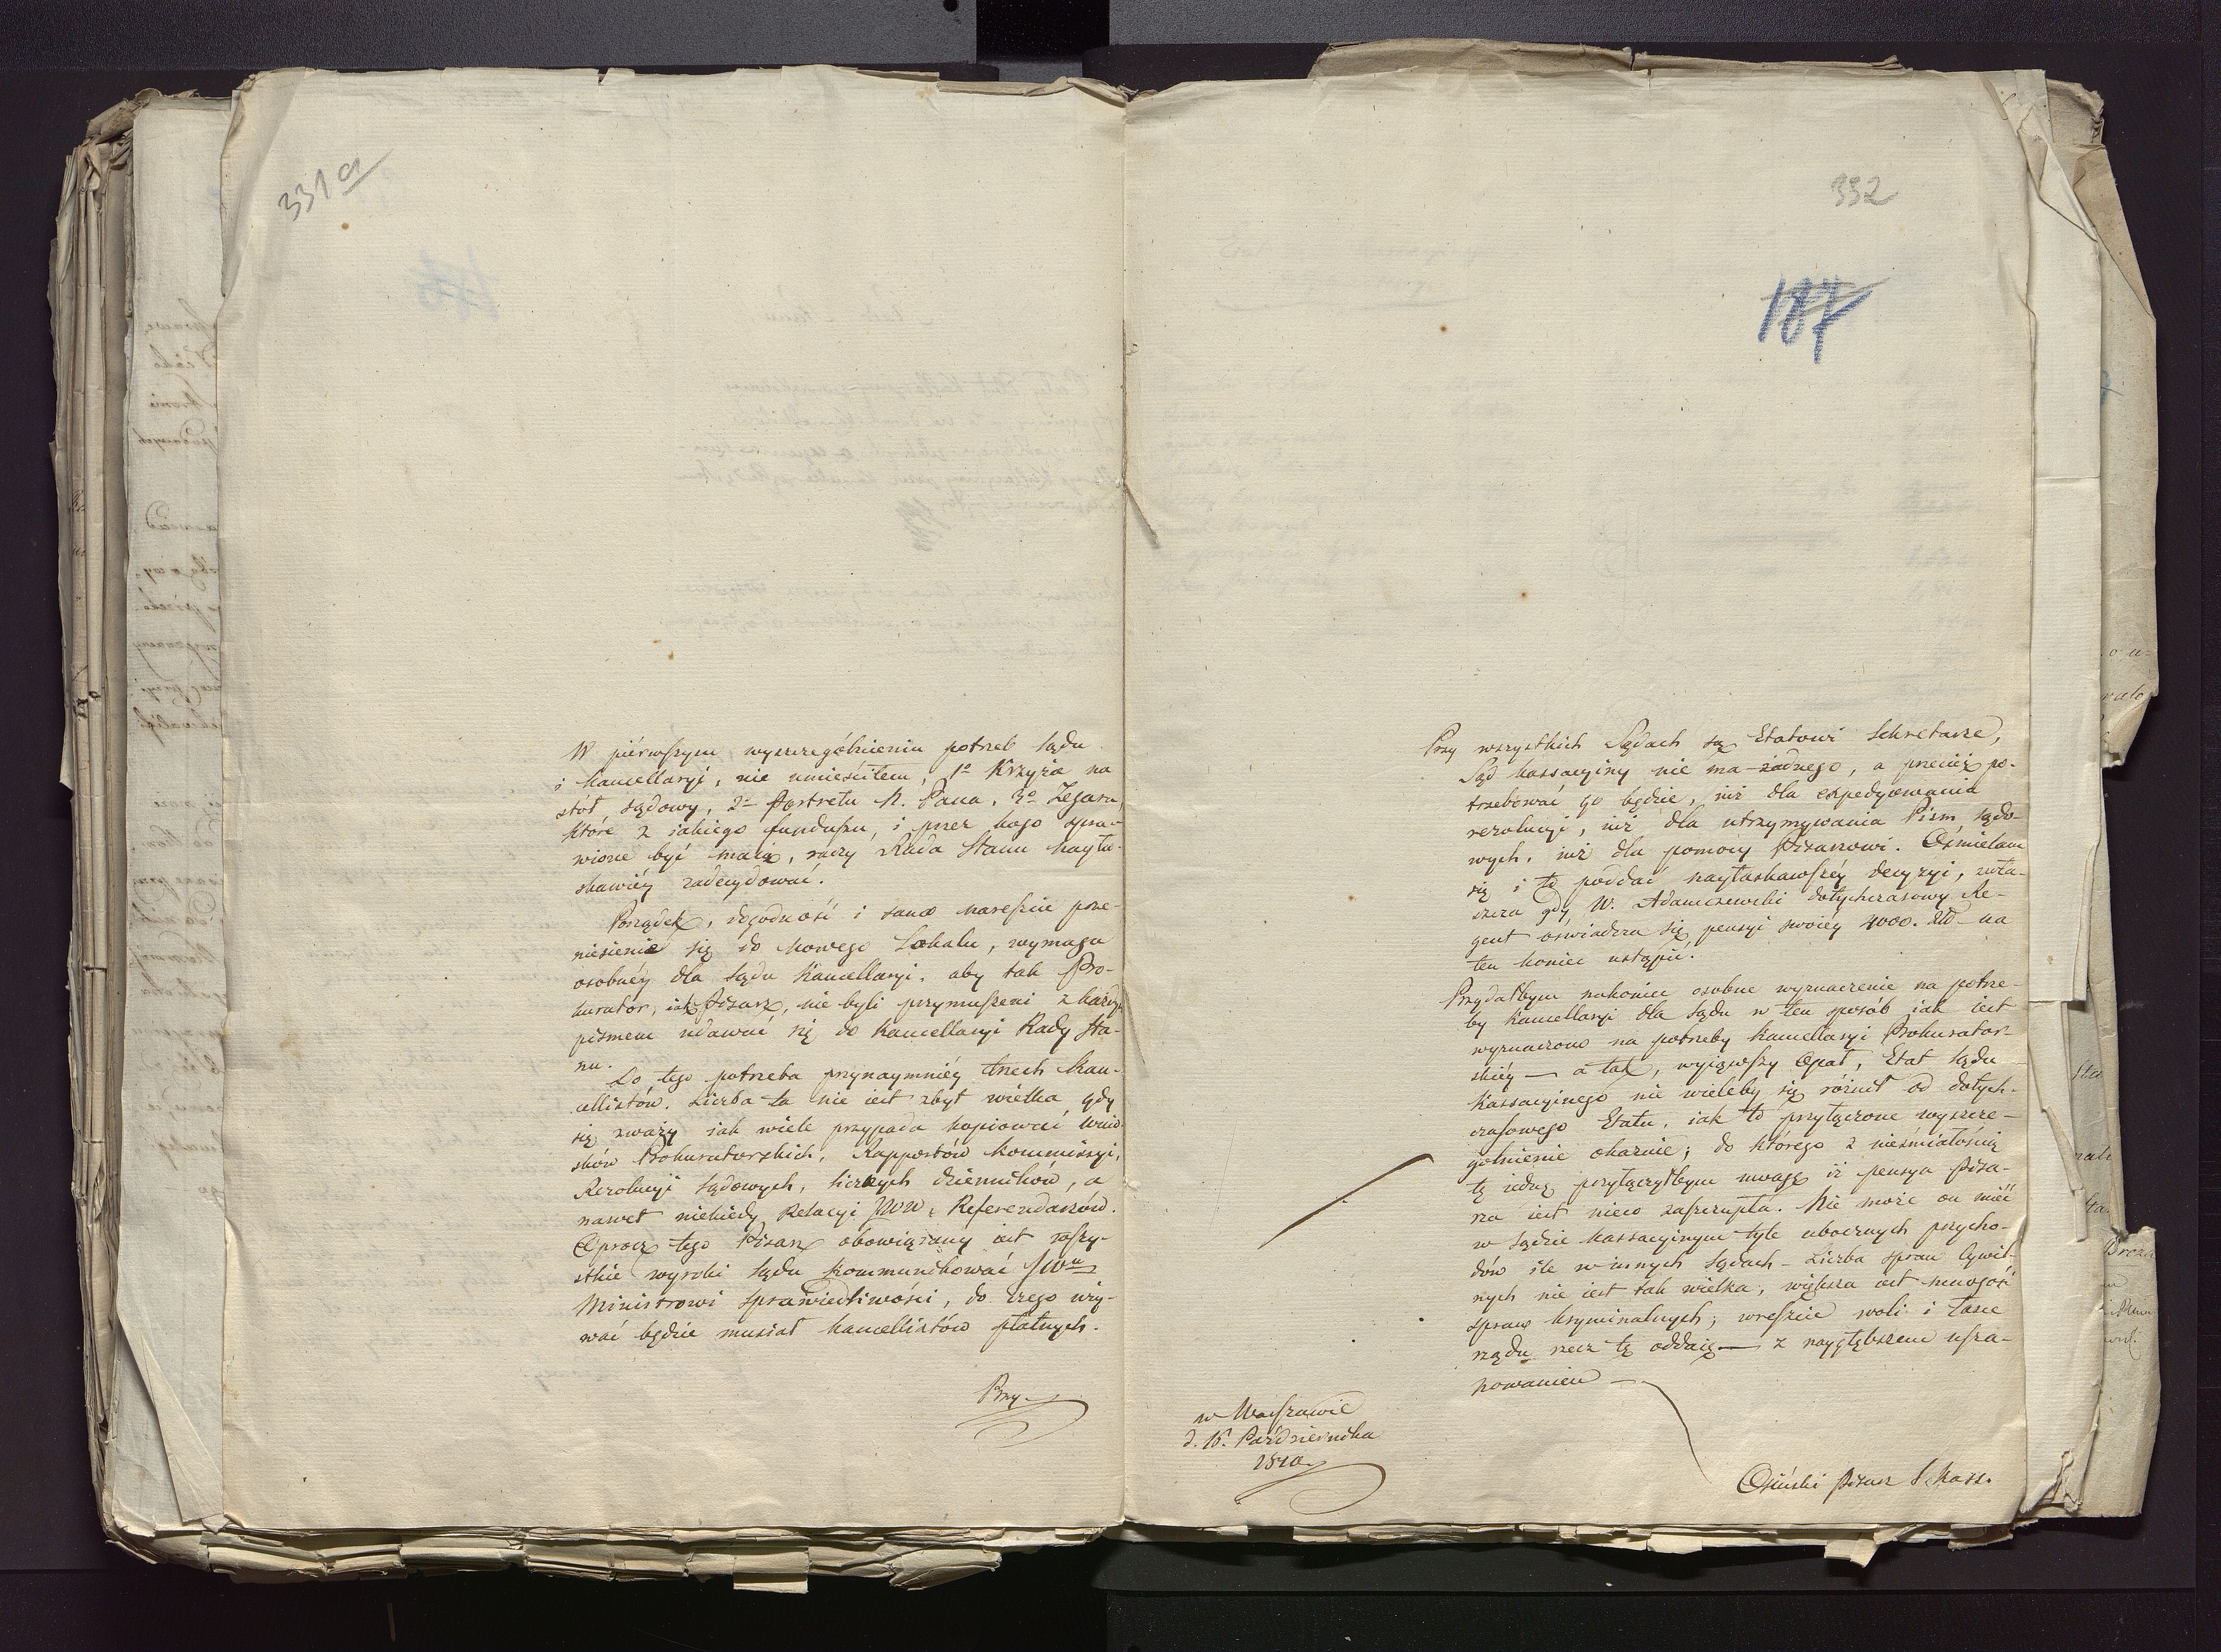 331a
W piérwszym wyszczególnieniu potrzeb Sądu
i Kancellaryi, nie umieściłem, 1º Krzyża na
stół sądowy, 2º Portretu N. Pana, 3º Zegaru,
które z iakiego funduszu, i przez kogo spra-
wione być maią, raczy Rada Stanu nayła-
skawiéy zadecydować.
Porządek, dogodność i samo nareszcie prze-
niesienie się do nowego Lokalu, wymaga
osobnéy dla Sądu Kancellaryi, aby tak Pro-
kurator, iak Pisarz, nie byli przymuszeni z każdym
pismem udawać się do Kancellaryi Rady Sta-
nu.
Do tego potrzeba przynaymniéy trzech Kan-
cellistów. Liczba ta nie iest zbyt wielka, gdy
się zważy iak wiele przypada kopiować wnio-
sków Prokuratorskich, Rapportów Kommissyi,
Rezolucyi Sądowych, licznych dzienników, a
nawet niekiedy Relacyi JWW. Referendarzów.
Oprocz tego Pisarz obowiązany iest wszy-
stkie wyroki Sądu kommunikować JWu
Ministrowi Sprawiedliwości, do czego uży-
wać będzie musiał Kancellistów płatnych.
Przy
332
187
Przy wszystkich Sądach są Etatowi Sekretarze,
Sąd Kassacyiny nie ma żadnego, a przecież po-
trzebować go będzie, iuż dla expedyowania
rezolucyi, iuż dla utrzymywania Pism Sądo-
wych, iuż dla pomocy Pisarzowi. Ośmielam
się i to poddać nayłaskawszéy decyzyi, zwła-
szcza gdy W. Adamczewski dotychczasowy Re-
gent oswiadcza się pensyi swoiéy 4000. Zł na
ten koniec ustąpić.
Przydałbym nakoniec osobne wyznaczenie na potrze-
by Kancellaryi dla Sądu w ten sposób iak iest
wyznaczono na potrzeby Kancellaryi Prokurator-
skiéy — a tak, wyiąwszy Opał, Etat Sądu
Kassacyinego nie wieleby się różnił od dotych-
czasowego Etatu, iak to przyłączone wyszcze-
gólnienie okazuie; do którego z nieśmiałością
tę iednę przyłączyłbym uwagę iż pensya Pisa-
rza iest nieco zaszczupła. Nie może on mieć
w Sądzie Kassacyinym tyle ubocznych przycho-
dów ile w innych Sądach — Liczba spraw Cywil-
nych nie iest tak wielka, większa iest mnogość
spraw kryminalnych; wreszcie woli i łasce
rządu rzecz tę oddaię — z naygłębszem usza-
nowaniem —
w Warszawie
d. 16. Października
1810
Osiński Pisarz S. Kass.